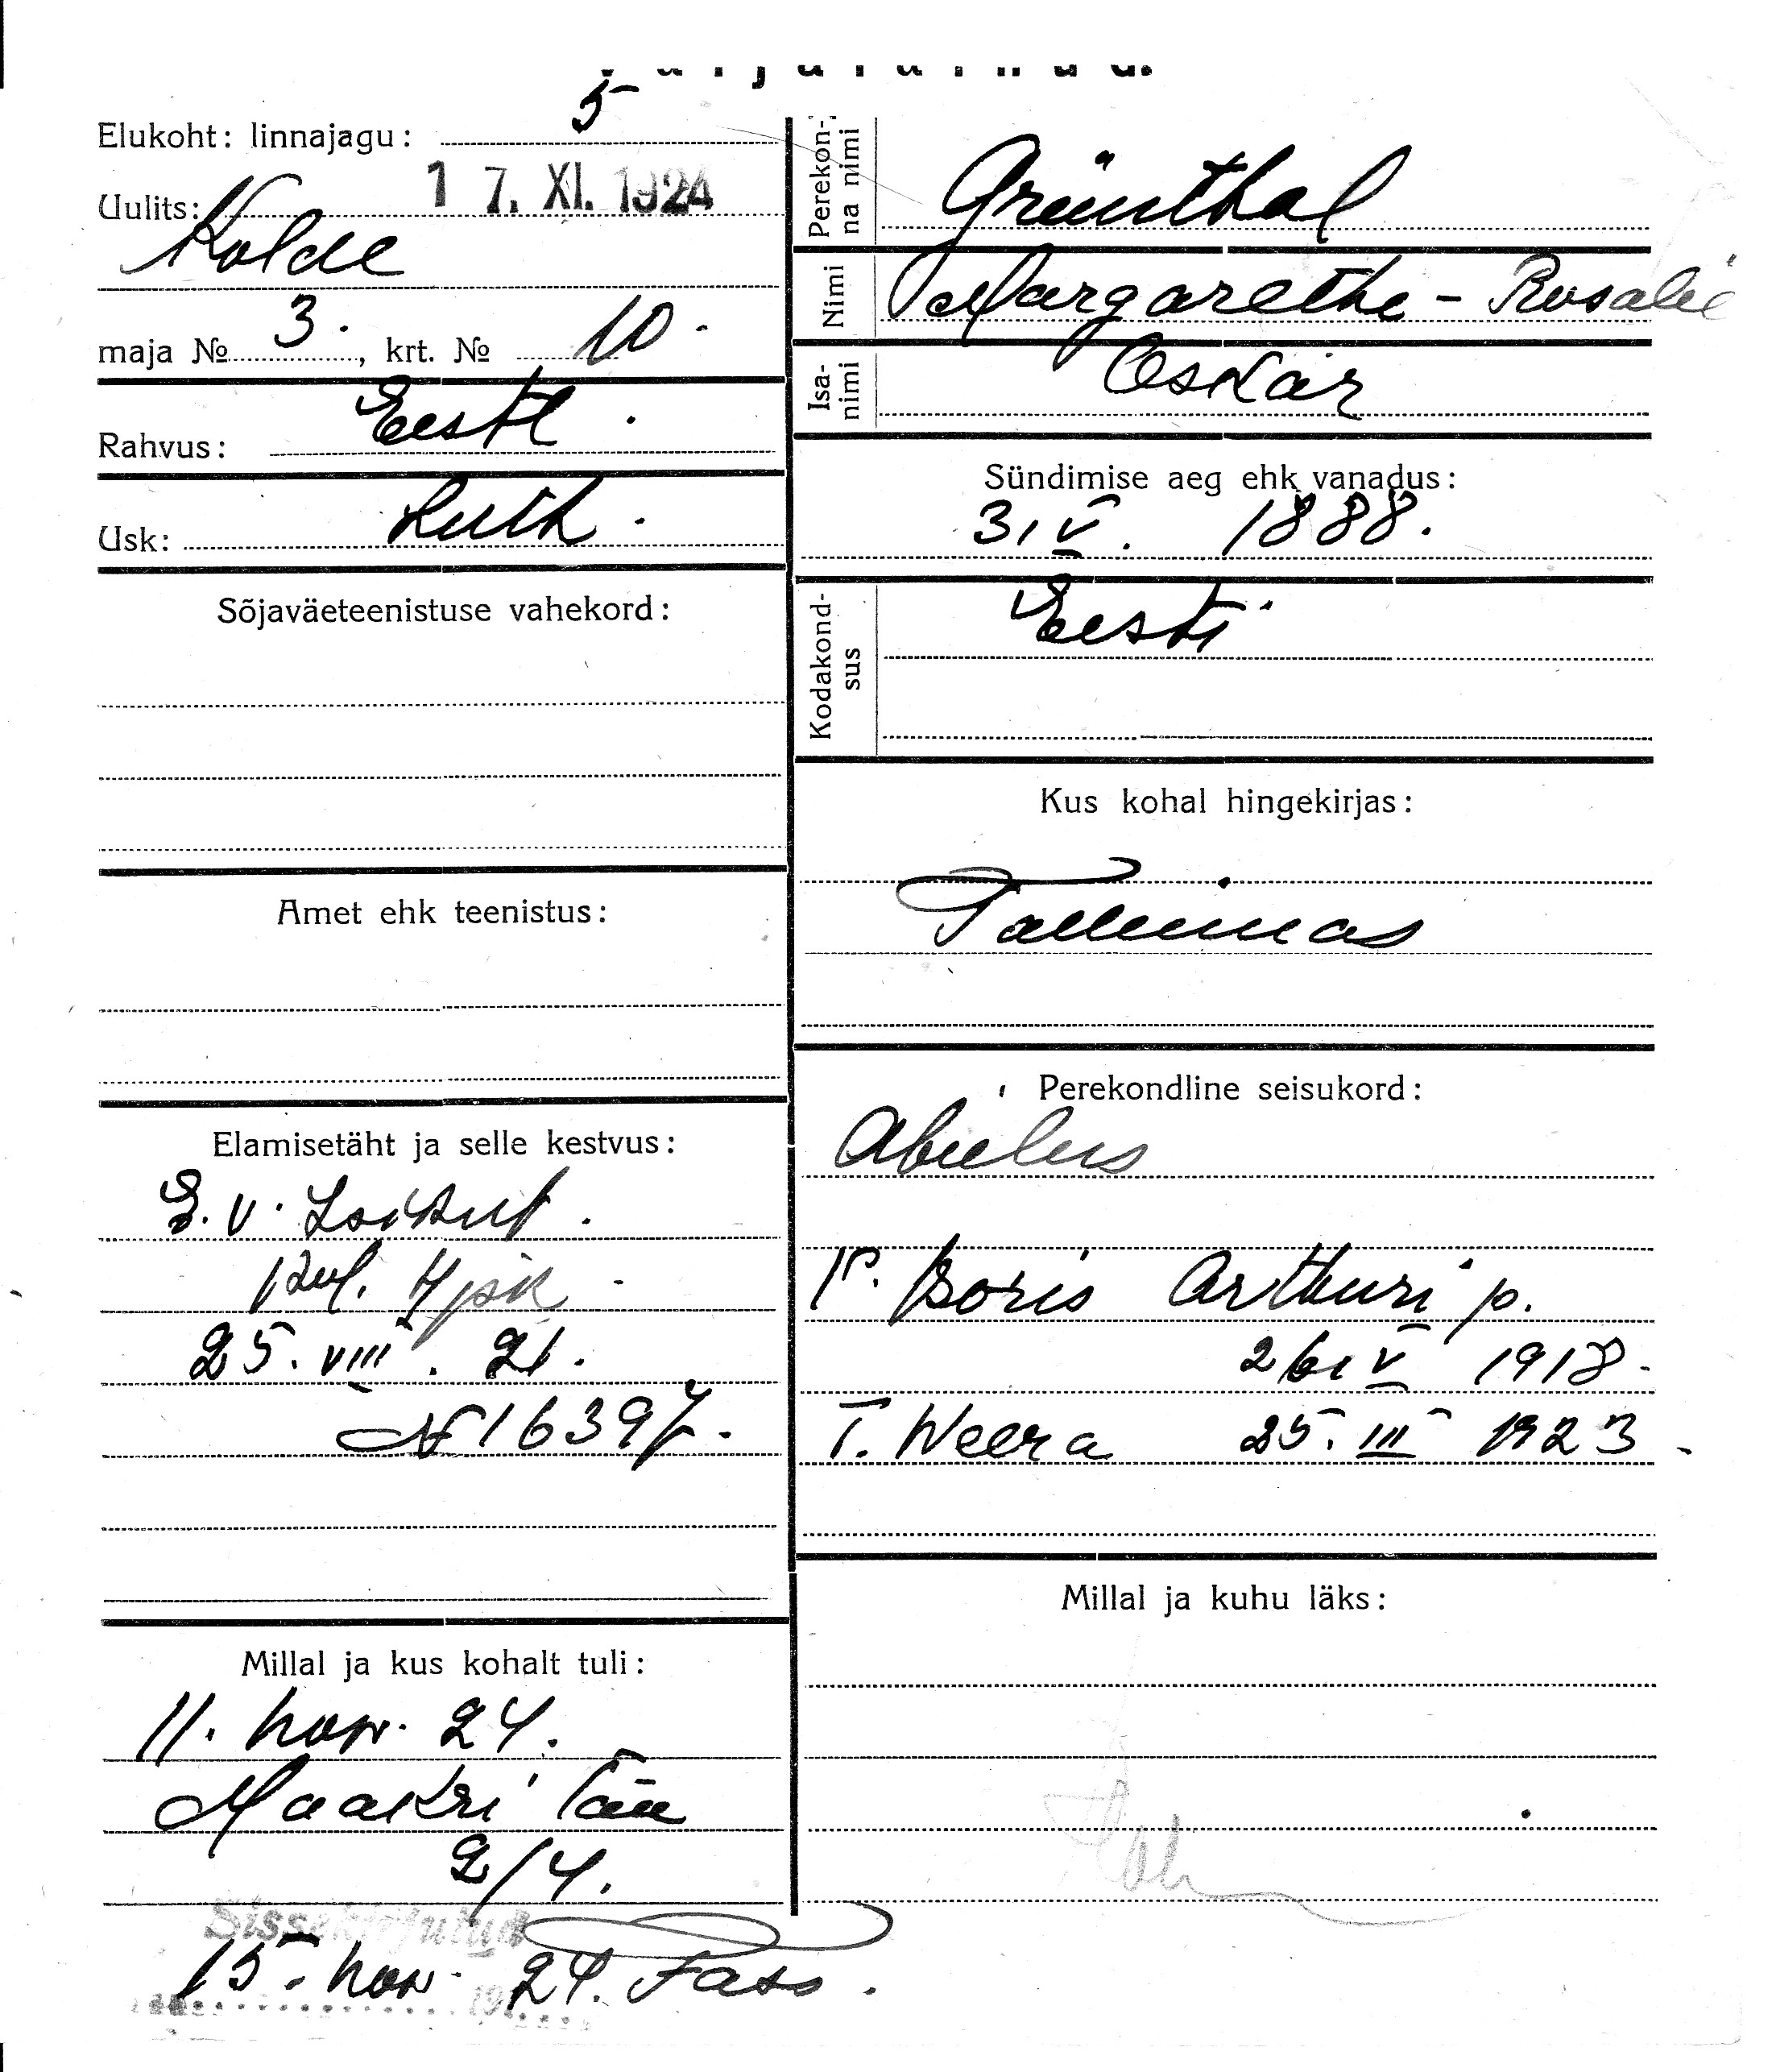 Elukoht: linnajagu: 5
17. XI. 1924
Uulits: Kolde
maja № 3., krt. № 10.
Rahvus: Eesti.
Usk: Luth.
Sõjaväeteenistuse vahekord:
Amet ehk teenistus:
Elamisetäht ja selle kestvus:
E. V. Isikut.
4 jsk
25. VIII. 21.
N 16397.
Millal ja kus kohalt tuli:
11. nov. 24.
Maakri tän
2/4.
Sissekirjutud
15. nov. 24. Pass.
Perekon-
na nimi
Grünthal
Nimi
Margarethe - Rosalie
Isa-
nimi
Oskar
Sündimise aeg ehk vanadus:
3. V. 1888.
Kodakond-
sus
Eesti
Kus kohal hingekirjas:
Tallinnas
Perekondline seisukord:
Abielus
P. Boris Arthuri p.
26. V 1918.
T. Weera 25. III 1923.
Millal ja kuhu läks: